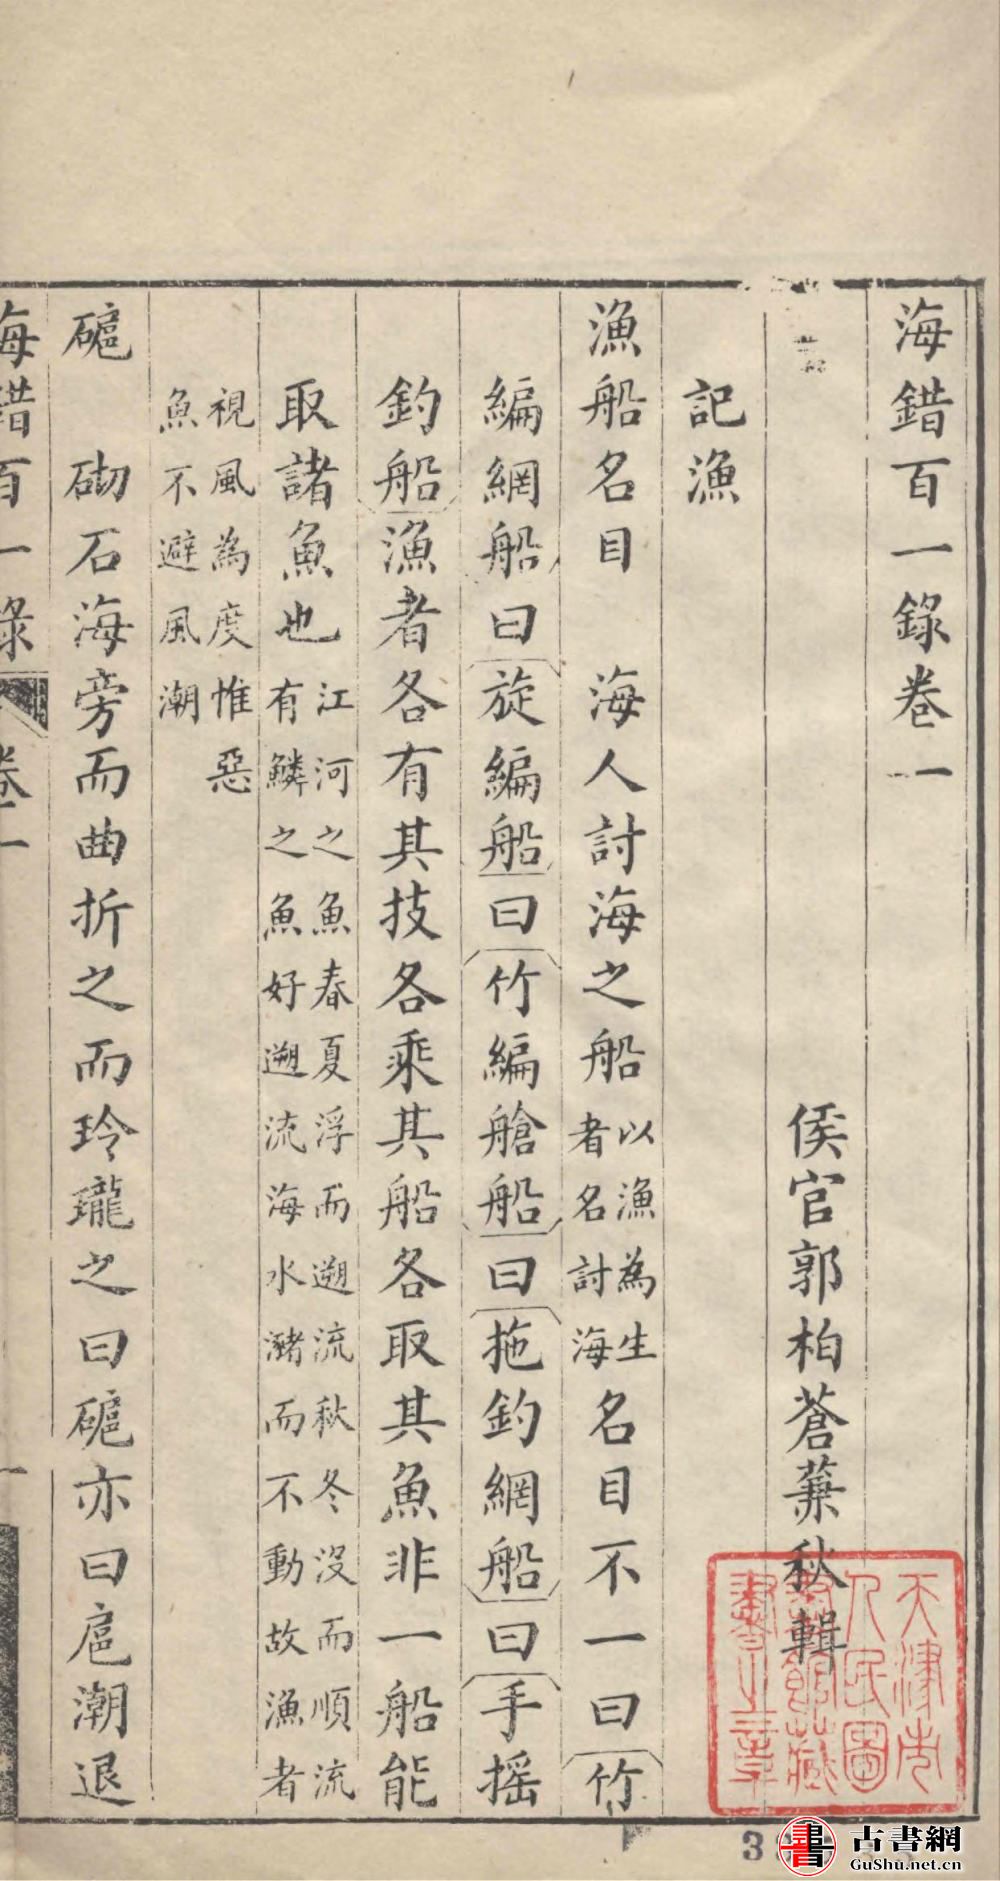 海錯百一錄卷一
侯官郭柏蒼蒹秋輯
記漁
漁船名目　海人討海之船以漁為生者名討海名目不一曰竹
編網船曰旋編船曰竹編艙船曰拖釣網船曰手搖
釣船漁者各有其技各乘其船各取其魚非一船能
取諸魚也江河之魚春夏浮而遡流秋冬沒而順流
有鱗之魚好遡流海水瀦而不動故漁者
視風為度惟惡
魚不避風潮
䃖　砌石海旁而曲折之而玲瓏之曰䃖亦曰扈潮退
海錯百一錄　卷一　一
天津市人民圖書館藏書之章
古書網
GuShu.net.cn